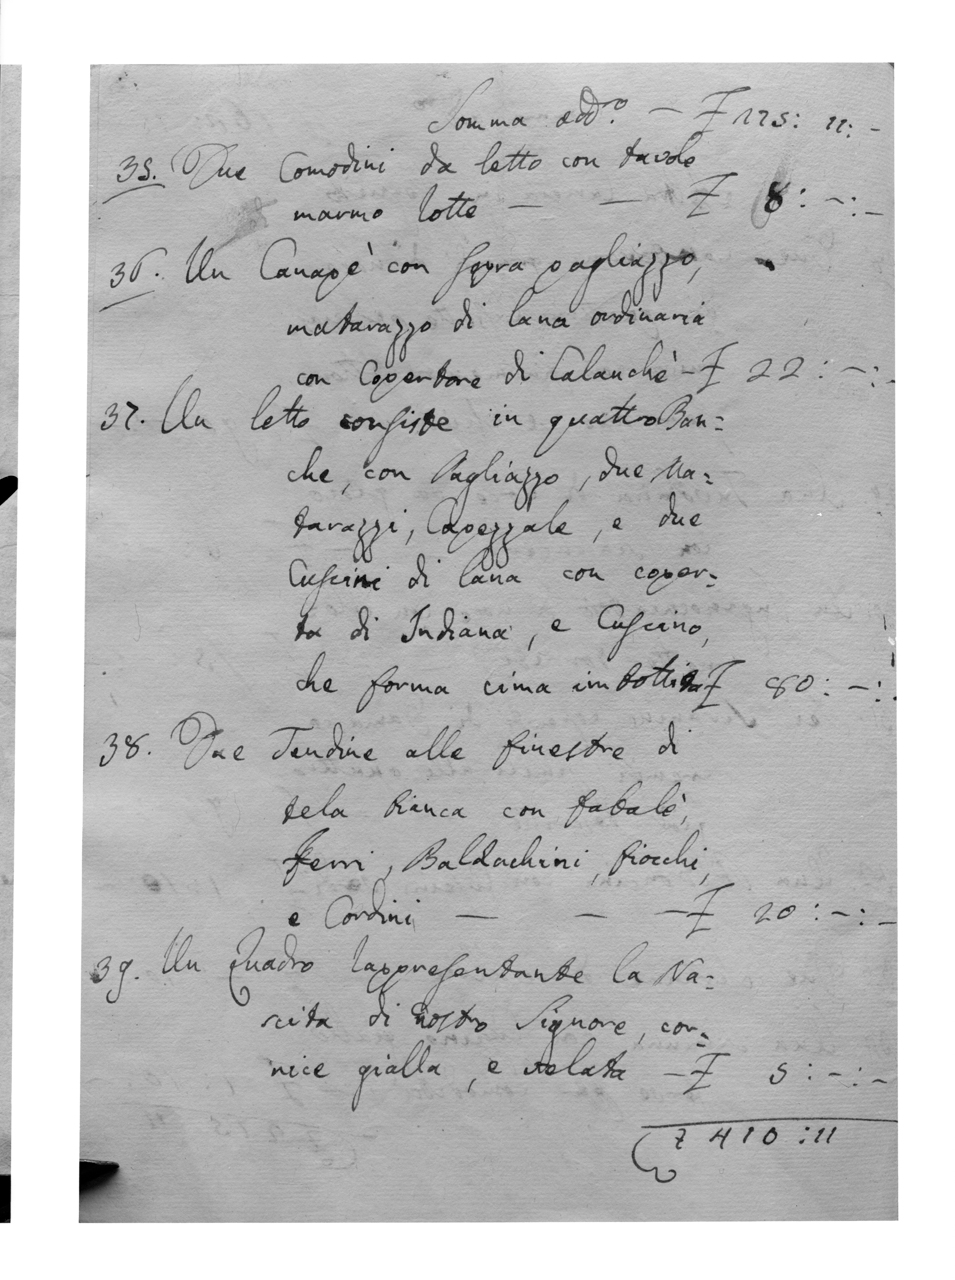 Somma addº. — £ 175: 11: -
35. Due Comodini da letto con tavole
marmo rotte — — £ 8: -:-
36. Un Canapè con sopra pagliazzo,
matarazzo di lana ordinaria
con Copertore di Calanchè - £ 22: -:-
37. Un letto consiste in quattro Ban=
che, con Pagliazzo, due Ma=
tarazzi, Capezzale, e due
Cuscini di lana con coper=
ta di Indiana, e Cuscino,
che forma cima imbottita £ 80: -:-
38. Due Tendine alle finestre di
tela bianca con fabalè,
ferri, Baldachini, fiocchi,
e Cordini — — — £ 20: -:-
39. Un Quadro rappresentante la Na=
scita di nostro Signore, cor=
nice gialla, e velata — £ 5: -:-
£ 410: 11